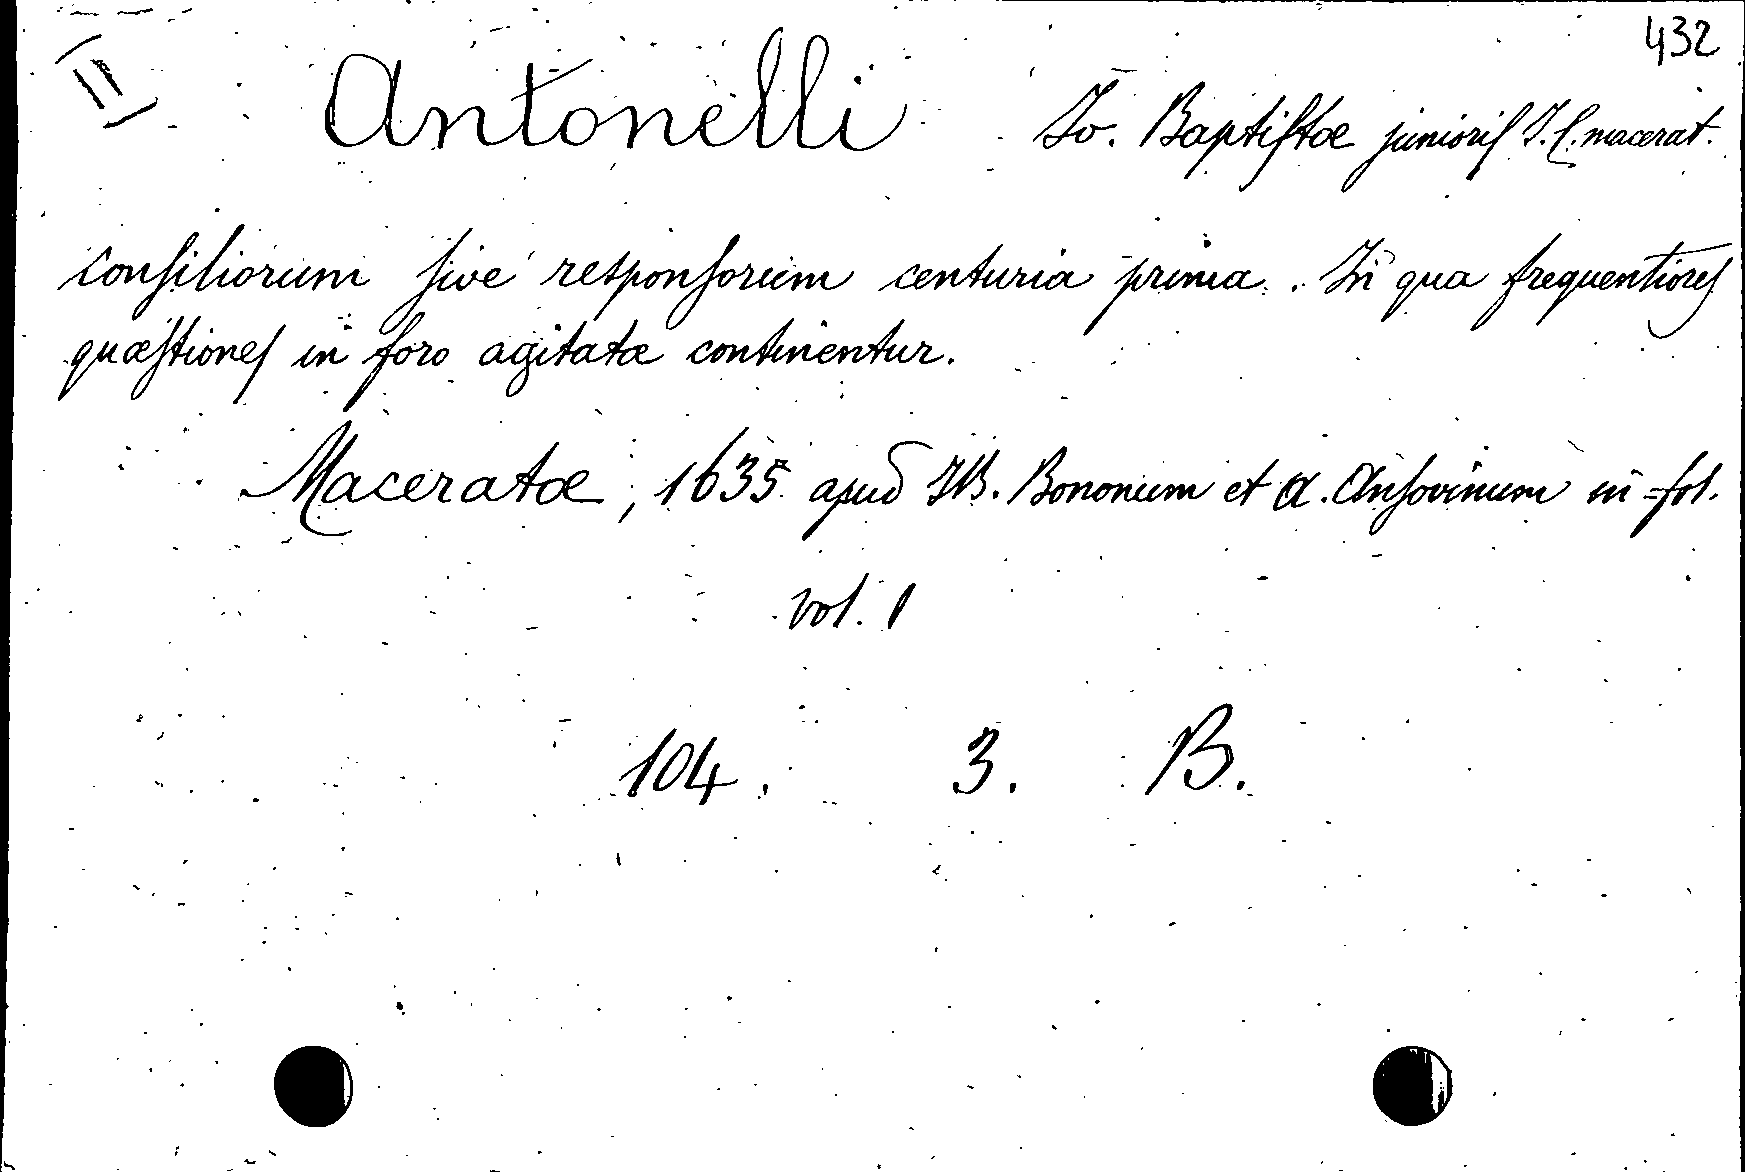 432
II
Antonelli Io. Baptistæ junioris I. C. macerat.
consiliorum sive responsorum centuria prima. In qua frequentiores
quæstiones in foro agitatæ continentur.
Maceratæ, 1635 apud JB. Bononum et A. Ansovinum in-fol.
vol. 1
104. 3. B.